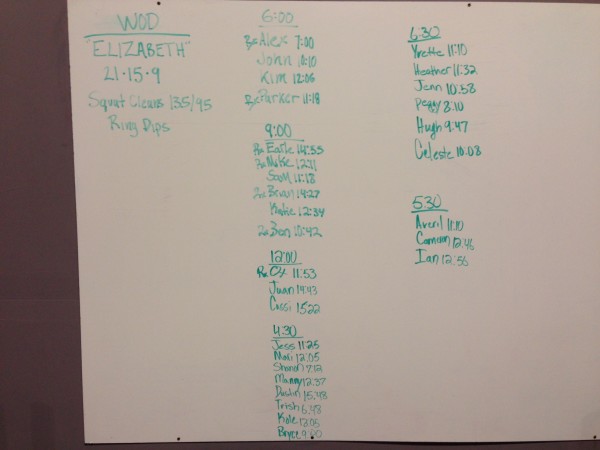 WOD
"ELIZABETH"
21-15-9
Squat Cleans 135/95
Ring Dips
6:00
Rx Alex 7:00
John 10:10
Kim 12:06
Rx Parker 11:18
9:00
Rx Earle 14:55
Rx Mike 12:11
Scott 11:18
Rx Brian 14:27
Katie 12:34
Rx Ben 10:42
12:00
Rx CY 11:53
Juan 14:43
Cassi 15:22
4:30
Jess 11:25
Mari 12:05
Sharon 7:12
Manny 12:37
Dustin 15:48
Trish 6:48
Kole 12:05
Bryce 9:00
6:30
Yvette 11:10
Heather 11:32
Jenn 10:58
Peggy 8:10
Hugh 9:47
Celeste 10:08
5:30
Averil 11:10
12:46
Ian 12:56